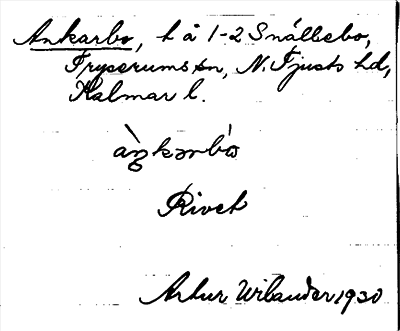 Ankarbo, t å 1-2 Snällebo,
Fryserums sn, N. Tjusts hd,
Kalmar l.
àŋkarbó
Rivet
Artur Wilander 1930